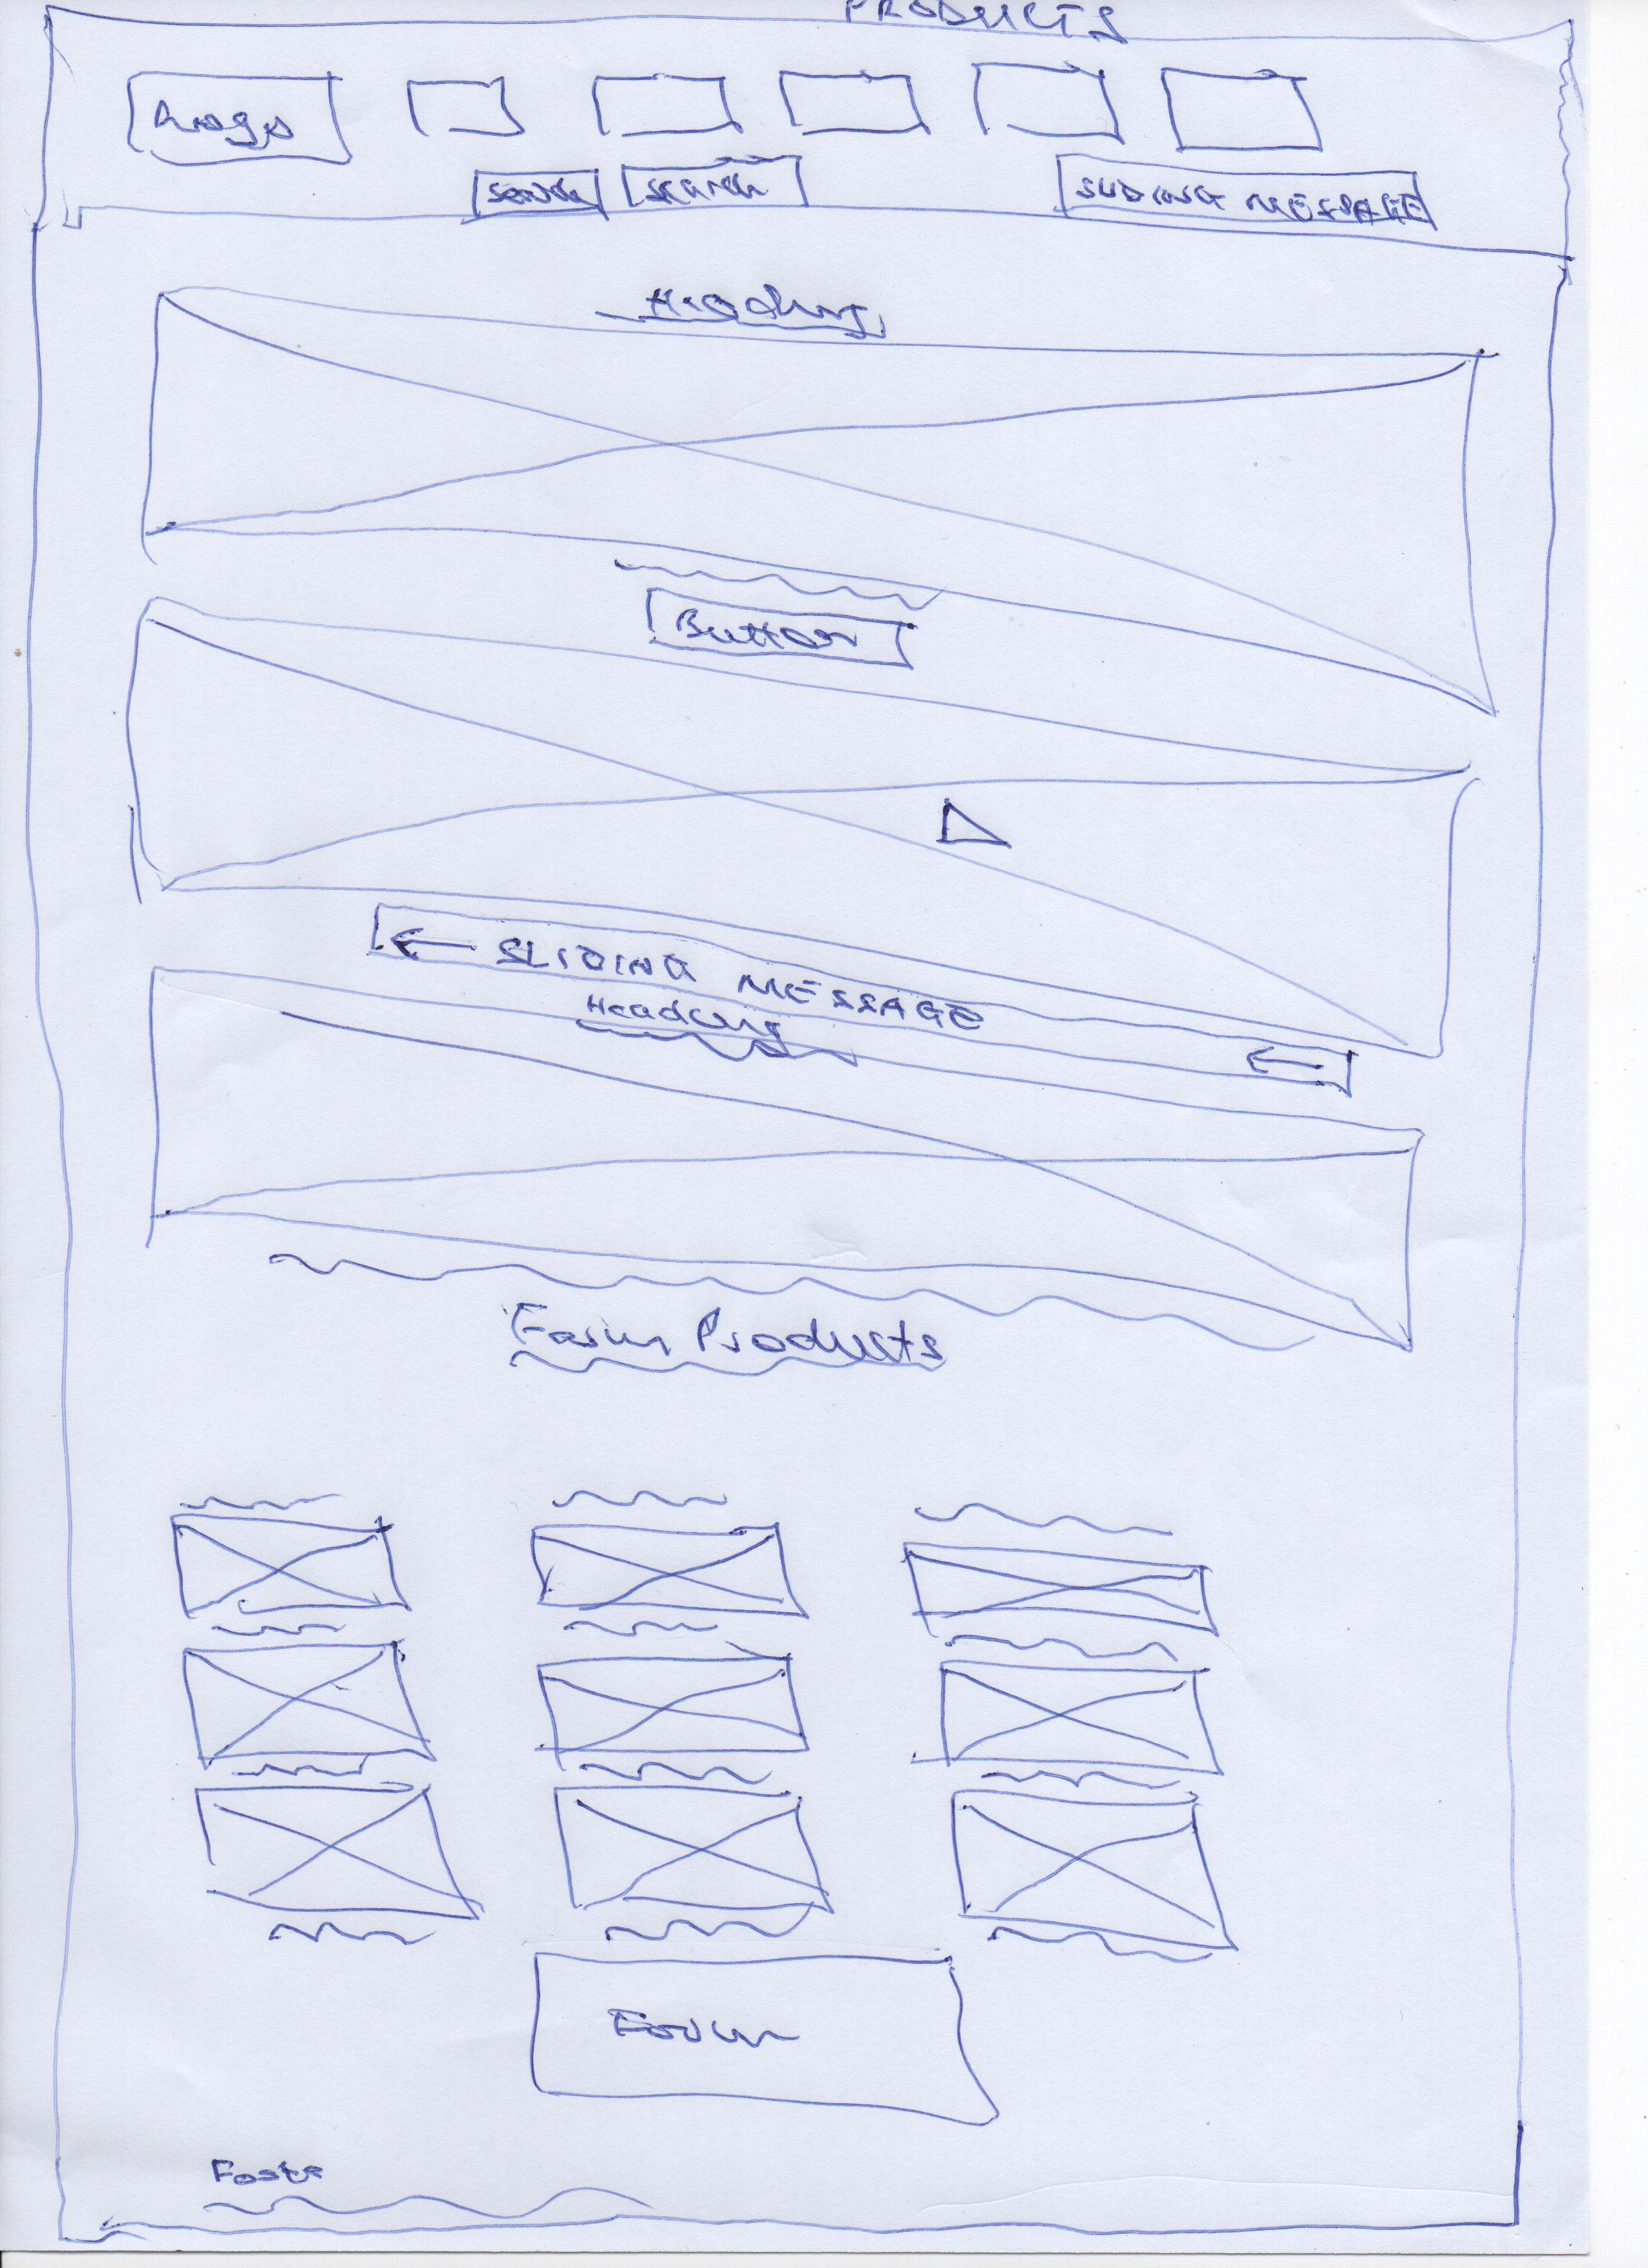 PRODUCTS
Logo
search
SLIDING MESSAGE
Heading
Button
SLIDING MESSAGE
Heading
Farm Products
Form